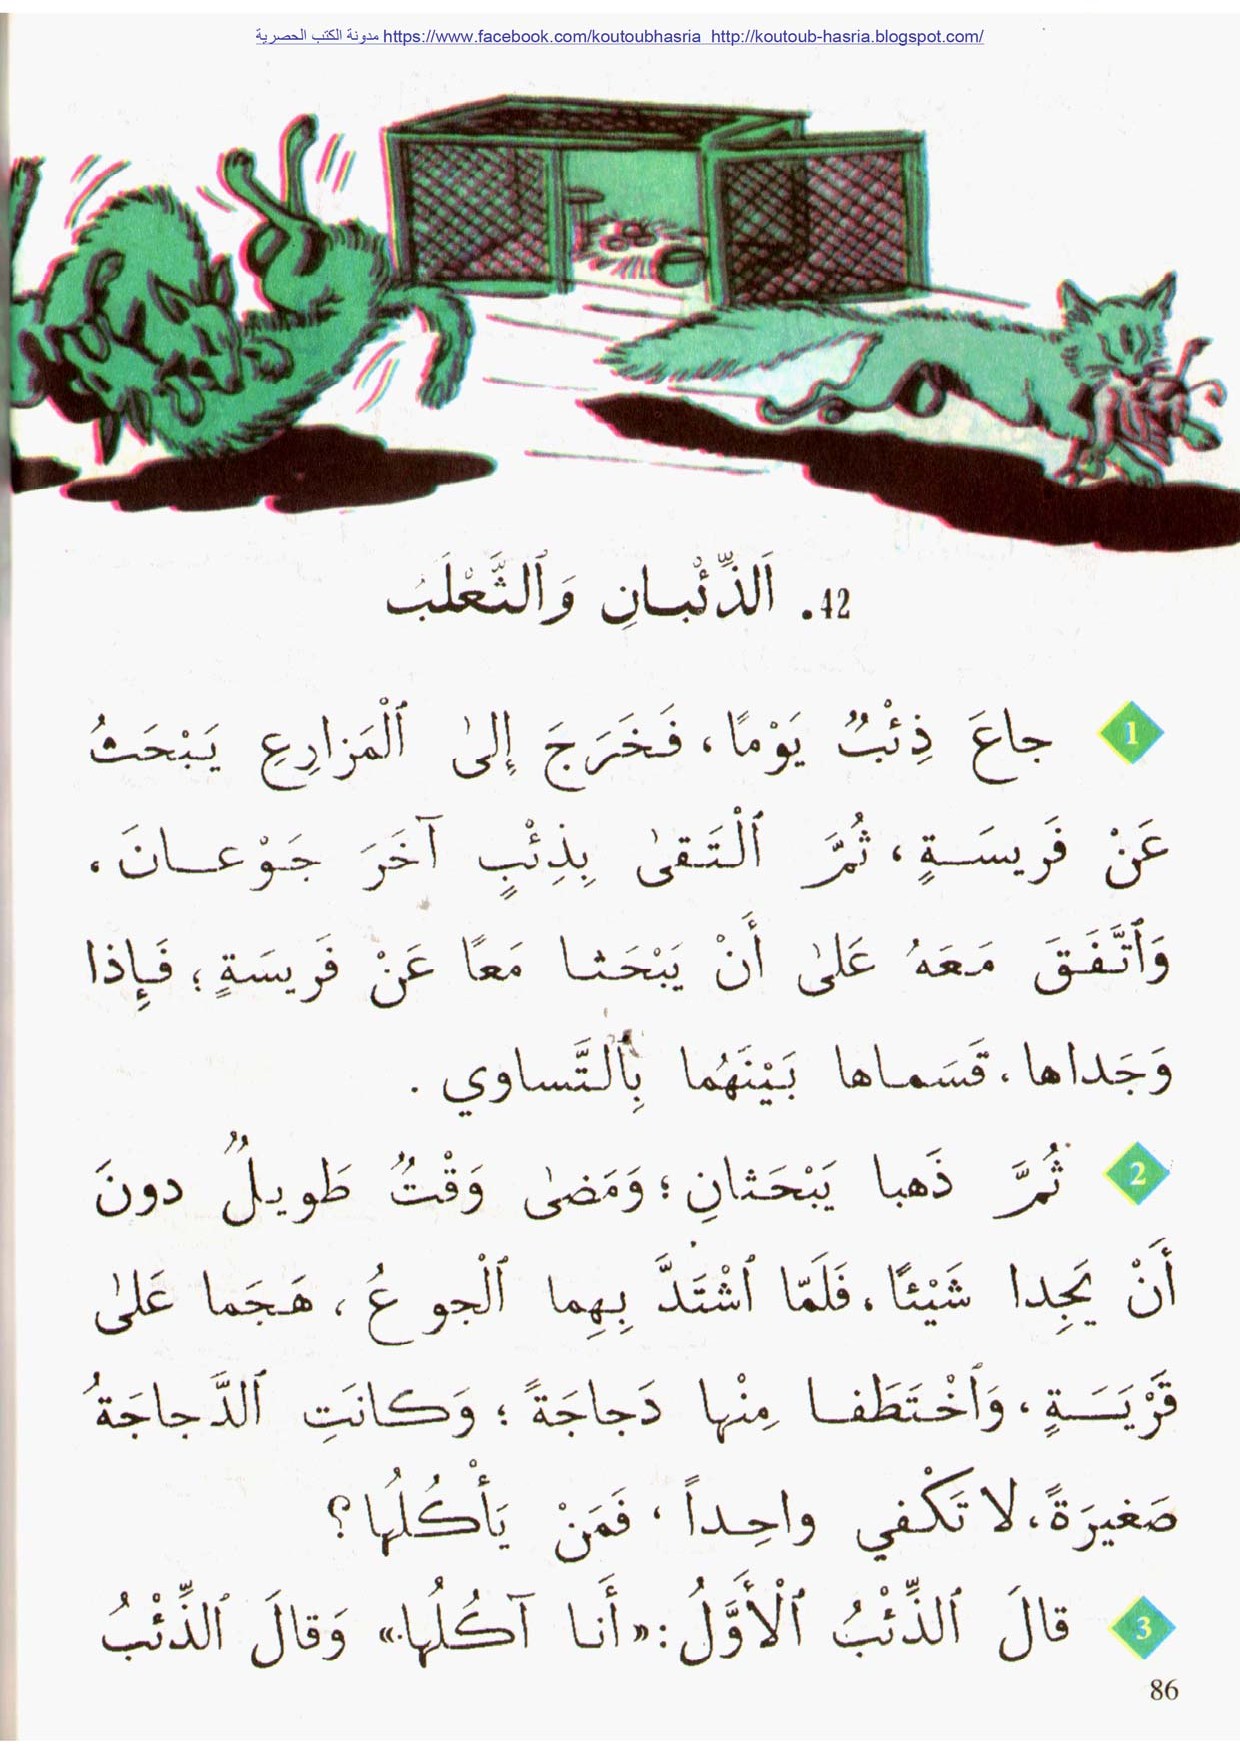 مدونة الكتب الحصرية https://www.facebook.com/koutoubhasria http://koutoub-hasria.blogspot.com/
42. اَلذِّئْبانِ وَٱلثَّعْلَبُ
1 جاعَ ذِئْبٌ يَوْمًا، فَخَرَجَ إِلىٰ ٱلْمَزارِعِ يَبْحَثُ
عَنْ فَريسَةٍ، ثُمَّ ٱلْتَقىٰ بِذِئْبٍ آخَرَ جَوْعانَ.
وَٱتَّفَقَ مَعَهُ عَلىٰ أَنْ يَبْحَثا مَعًا عَنْ فَريسَةٍ؛ فَإِذا
وَجَداها، قَسَماها بَيْنَهُما بِٱلتَّساوي.
2 ثُمَّ ذَهبا يَبْحَثانِ؛ وَمَضىٰ وَقْتٌ طَويلٌ دونَ
أَنْ يَجِدا شَيْئًا، فَلَمّا ٱشْتَدَّ بِهِما ٱلْجوعُ، هَجَما عَلىٰ
قَرْيَةٍ، وَٱخْتَطَفا مِنْها دَجاجَةً؛ وَكانَتِ ٱلدَّجاجَةُ
صَغيرَةً، لا تَكْفي واحِداً، فَمَنْ يَأْكُلُها؟
3 قالَ ٱلذِّئْبُ ٱلْأَوَّلُ: «أَنا آكُلُها.» وَقالَ ٱلذِّئْبُ
86